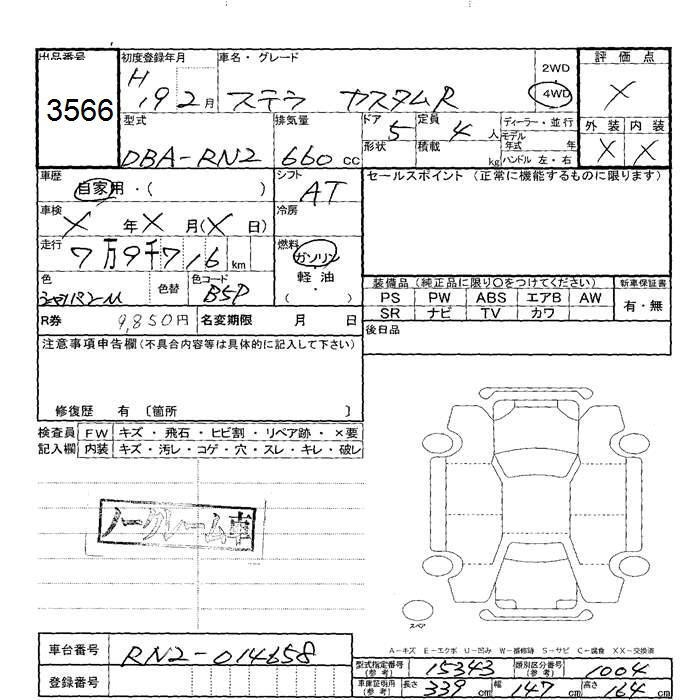 出品番号 初度登録年月 車名・グレード 2WD 評価点
3566 H19 2月 ステラ カスタムR 4WD X
型式 排気量 ドア 5 定員 4人 ディーラー・並行 外装 内装
形状 積載 kg モデル年式 年 X X
DBA-RN2 660cc ハンドル 左・右
車歴 シフト セールスポイント (正常に機能するものに限ります)
自家用・( ) AT
車検 冷房
X年X月(X日)
走行 燃料
7万9千716km ガソリン
色 色替 色コード 軽油
B5P ( )
装備品(純正品に限り○をつけてください) 新車保証書
PS PW ABS エアB AW 有・無
SR ナビ TV カワ
R券 9,850円 名変期限 月 日 後日品
注意事項申告欄(不具合内容等は具体的に記入して下さい)
修復歴 有 〔箇所 〕
検査員 FW キズ・飛石・ヒビ割・リペア跡・×要
記入欄 内装 キズ・汚レ・コゲ・穴・スレ・キレ・破レ
ノークレーム車
スペア
A-キズ E-エクボ U-凹み W-補修跡 S-サビ C-腐食 XX-交換済
車台番号 RN2-014658 型式指定番号(参考) 15343 類別区分番号(参考) 1004
登録番号 車庫証明用(参考) 長さ 339cm 幅 147cm 高さ 164cm